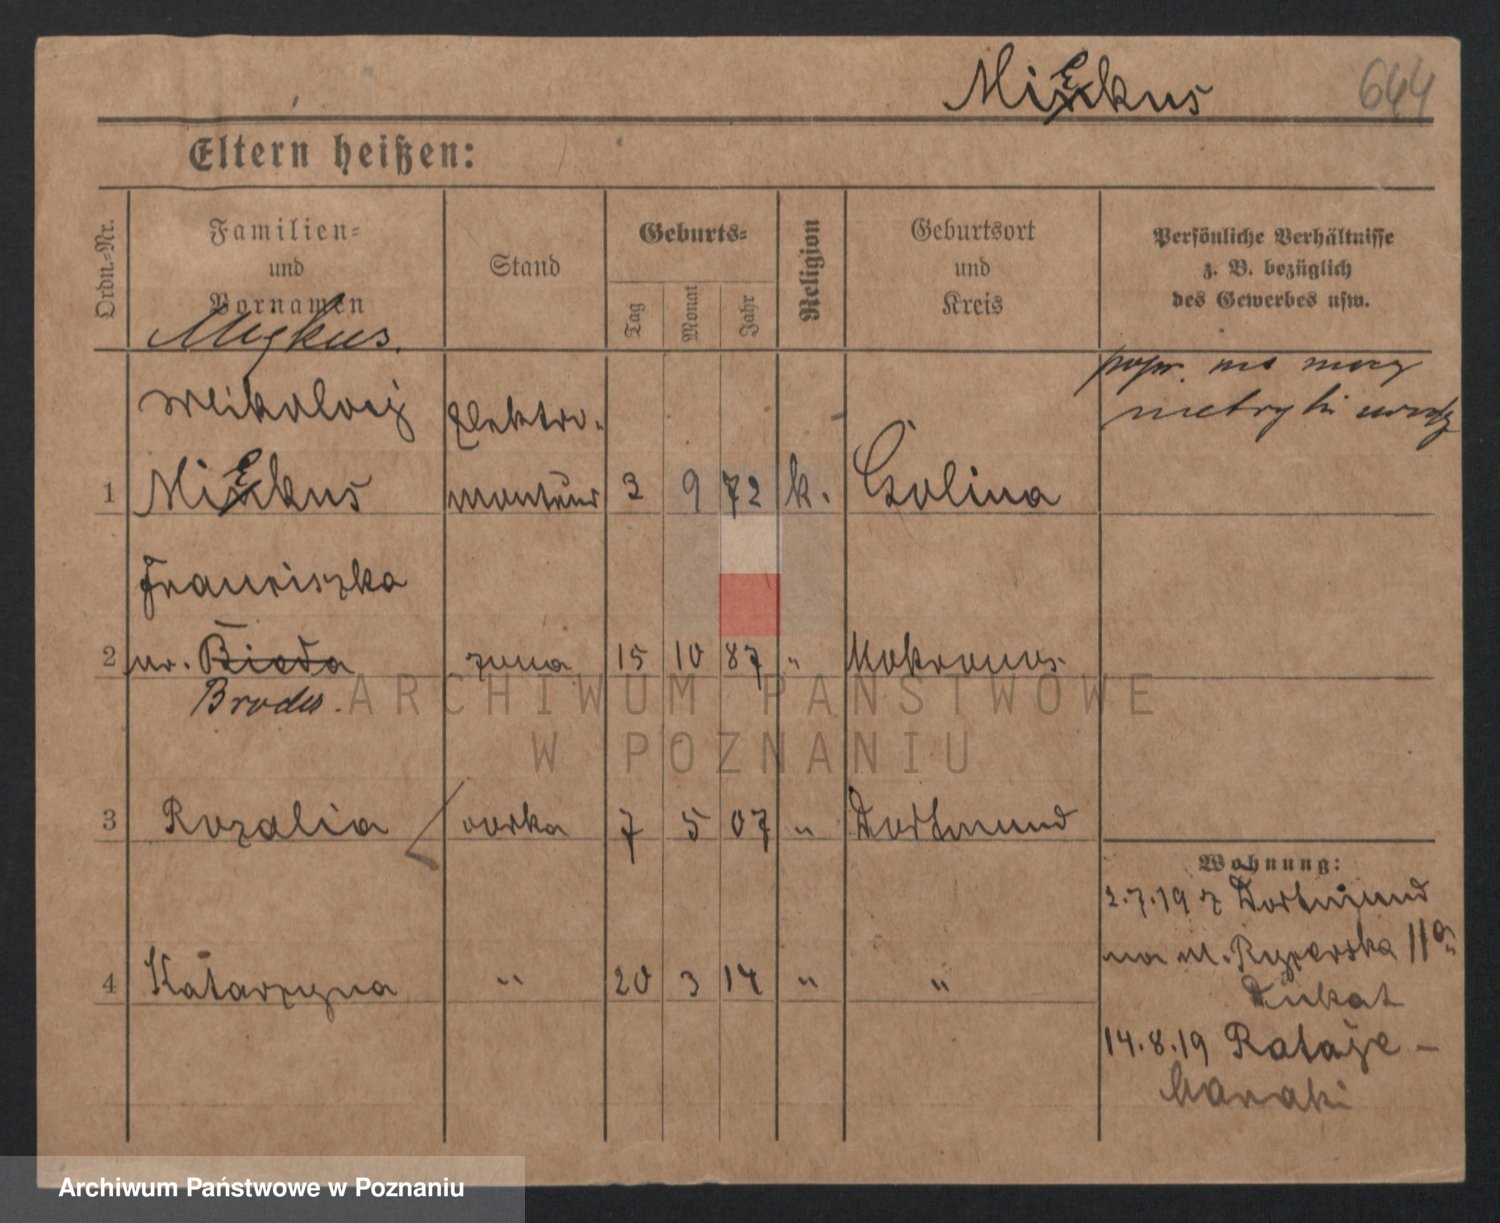 Miękus 644
Eltern heißen:
Ordn.-Nr.
Familien-
und
Vornamen
Stand
Geburts-
Tag
Monat
Jahr
Religion
Geburtsort
und
Kreis
Persönliche Verhältnisse
z. B. bezüglich
des Gewerbes usw.
Migkus.
popr. na mocy
metryki urodz
Mikołaj Elektro-
1 Miękus monteur 3 9 72 k. Golina
Franciszka
2 ur. Bieda żona 15 10 87 " Mokronos
Brodes.
3 Rozalia córka 7 5 07 " Dortmund
Wohnung:
2.7.19 z Dortmund
na ul. Rycerska 11a
4 Katarzyna " 20 3 14 " "
Łukat
14.8.19 Rataje -
ARCHIWUM PAŃSTWOWE
W POZNANIU
Archiwum Państwowe w Poznaniu